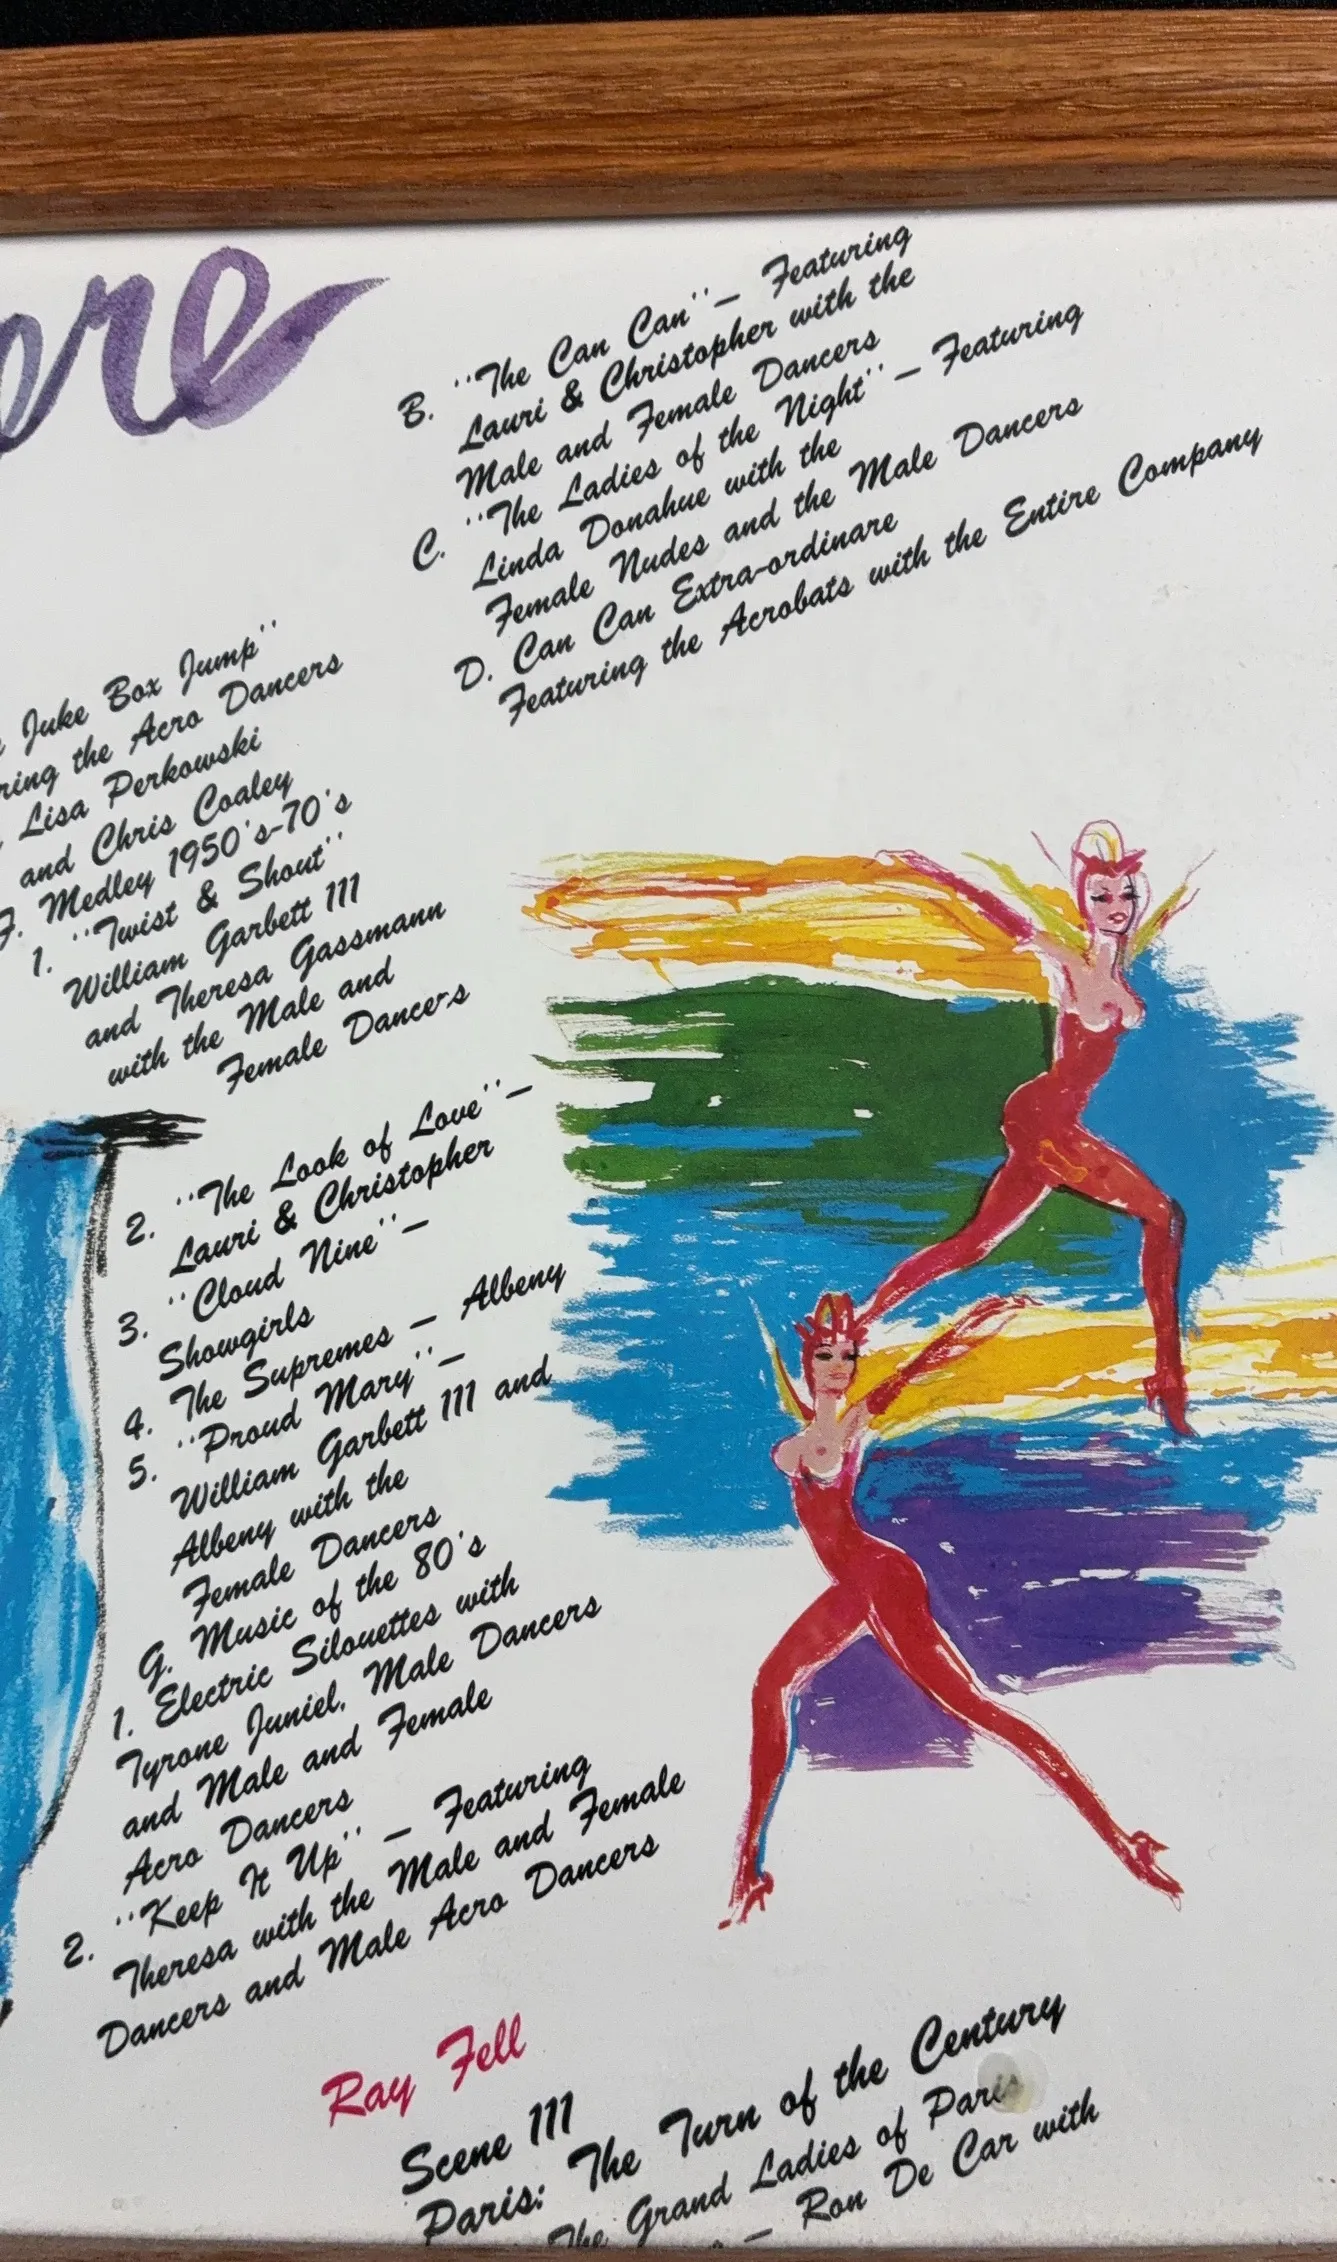 ere
Juke Box Jump"
ring the Acro Dancers
Lisa Perkowski
and Chris Coaley
F. Medley 1950's-70's
1. "Twist & Shout"
William Garbett 111
and Theresa Gassmann
with the Male and
Female Dancers
2. "The Look of Love"—
Lauri & Christopher
3. "Cloud Nine"—
Showgirls
4. The Supremes — Albeny
5. "Proud Mary"—
William Garbett 111 and
Albeny with the
Female Dancers
G. Music of the 80's
1. Electric Silouettes with
Tyrone Juniel, Male Dancers
and Male and Female
Acro Dancers
2. "Keep It Up" — Featuring
Theresa with the Male and Female
Dancers and Male Acro Dancers
Ray Fell
Scene 111
Paris: The Turn of the Century
The Grand Ladies of Paris
— Ron De Car with
B. "The Can Can"— Featuring
Lauri & Christopher with the
Male and Female Dancers
C. "The Ladies of the Night" — Featuring
Linda Donahue with the
Female Nudes and the Male Dancers
D. Can Can Extra-ordinare
Featuring the Acrobats with the Entire Company